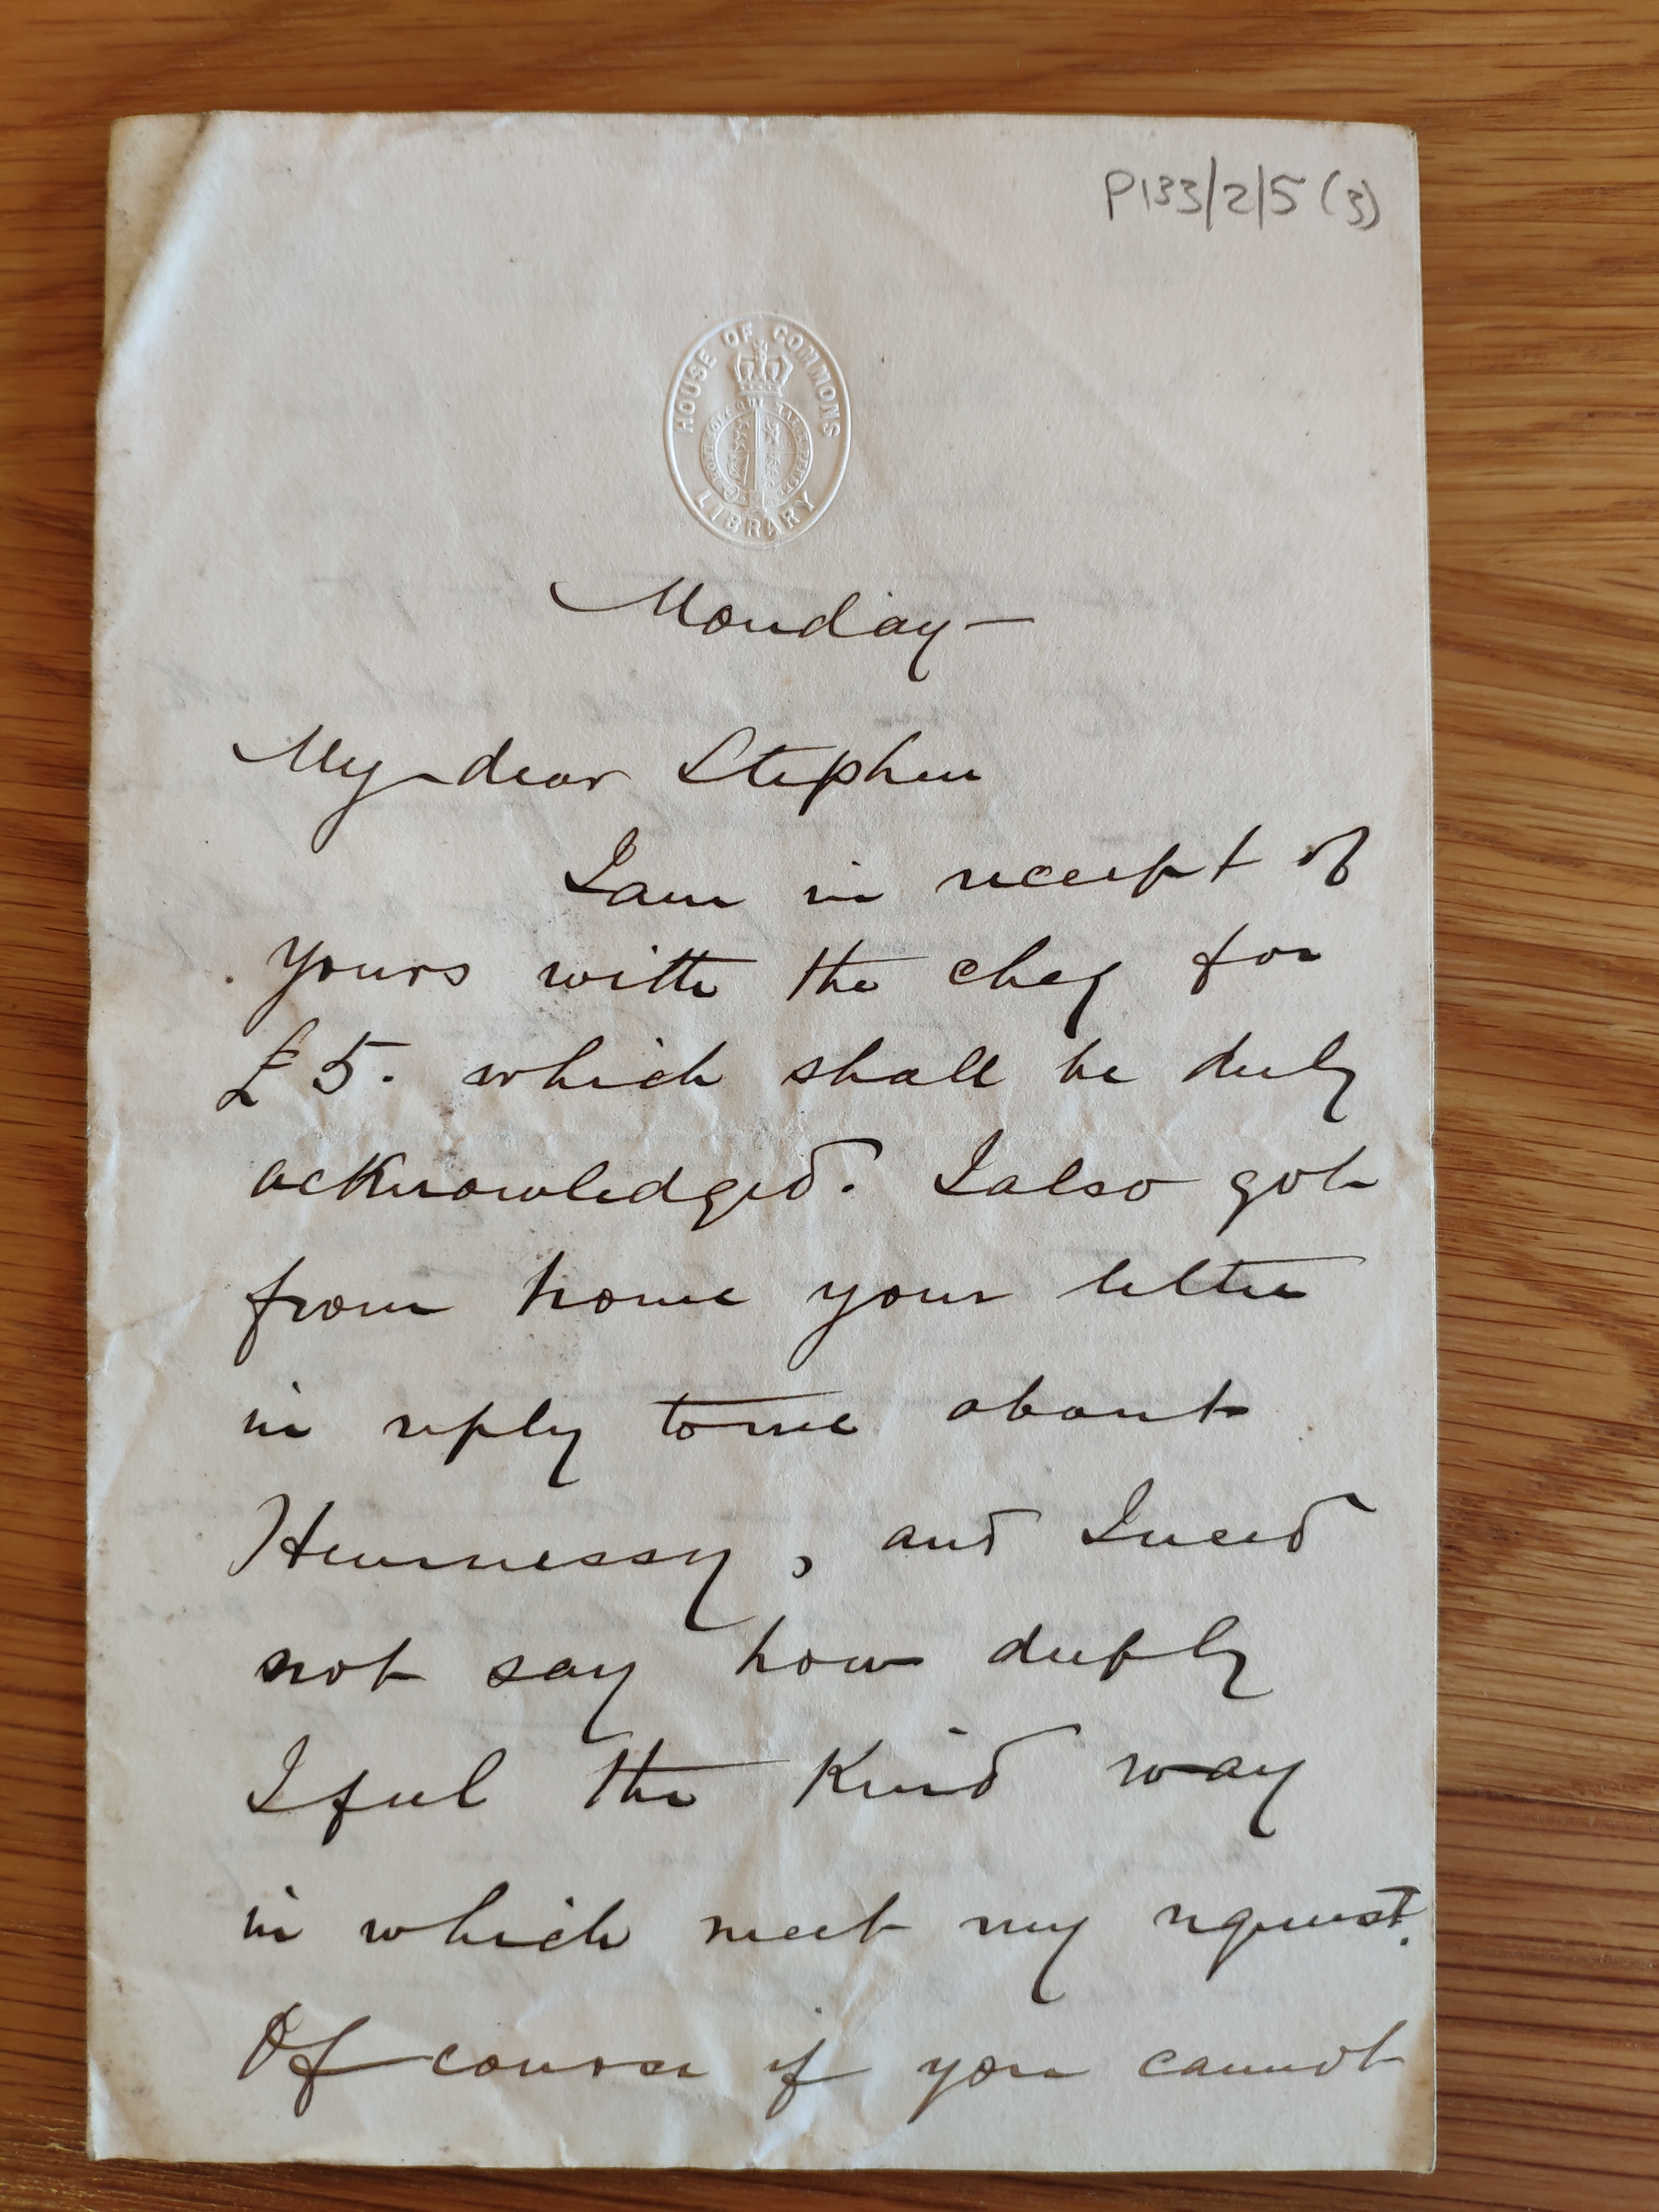 P133/2/5 (3)
HOUSE OF COMMONS
LIBRARY
Monday —
My dear Stephen
I am in receipt of
yours with the cheq for
£5. which shall be duly
acknowledged. I also got
from home your letter
in reply to me about
Hennessy, and I need
not say how deeply
I feel the kind way
in which meet my request.
Of course if you cannot